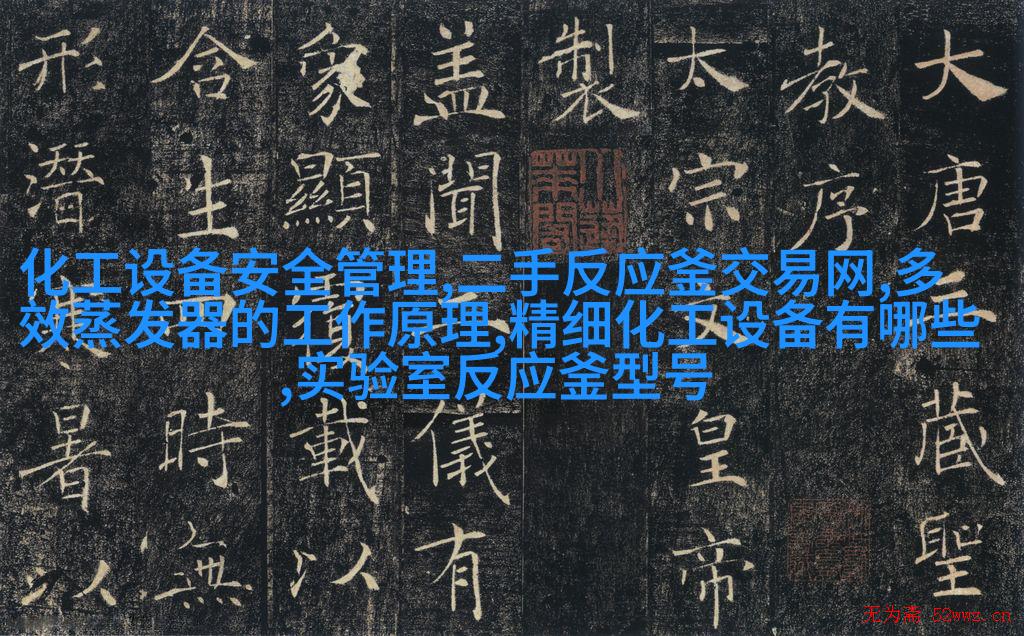 大唐三藏聖
教序
太宗文皇帝
製
盖聞二儀有
象顯覆載以
含生四時無
形潛寒暑以
化工设备安全管理,二手反应釜交易网,多
效蒸发器的工作原理,精细化工设备有哪些
,实验室反应釜型号
无为斋 52wwz.cn